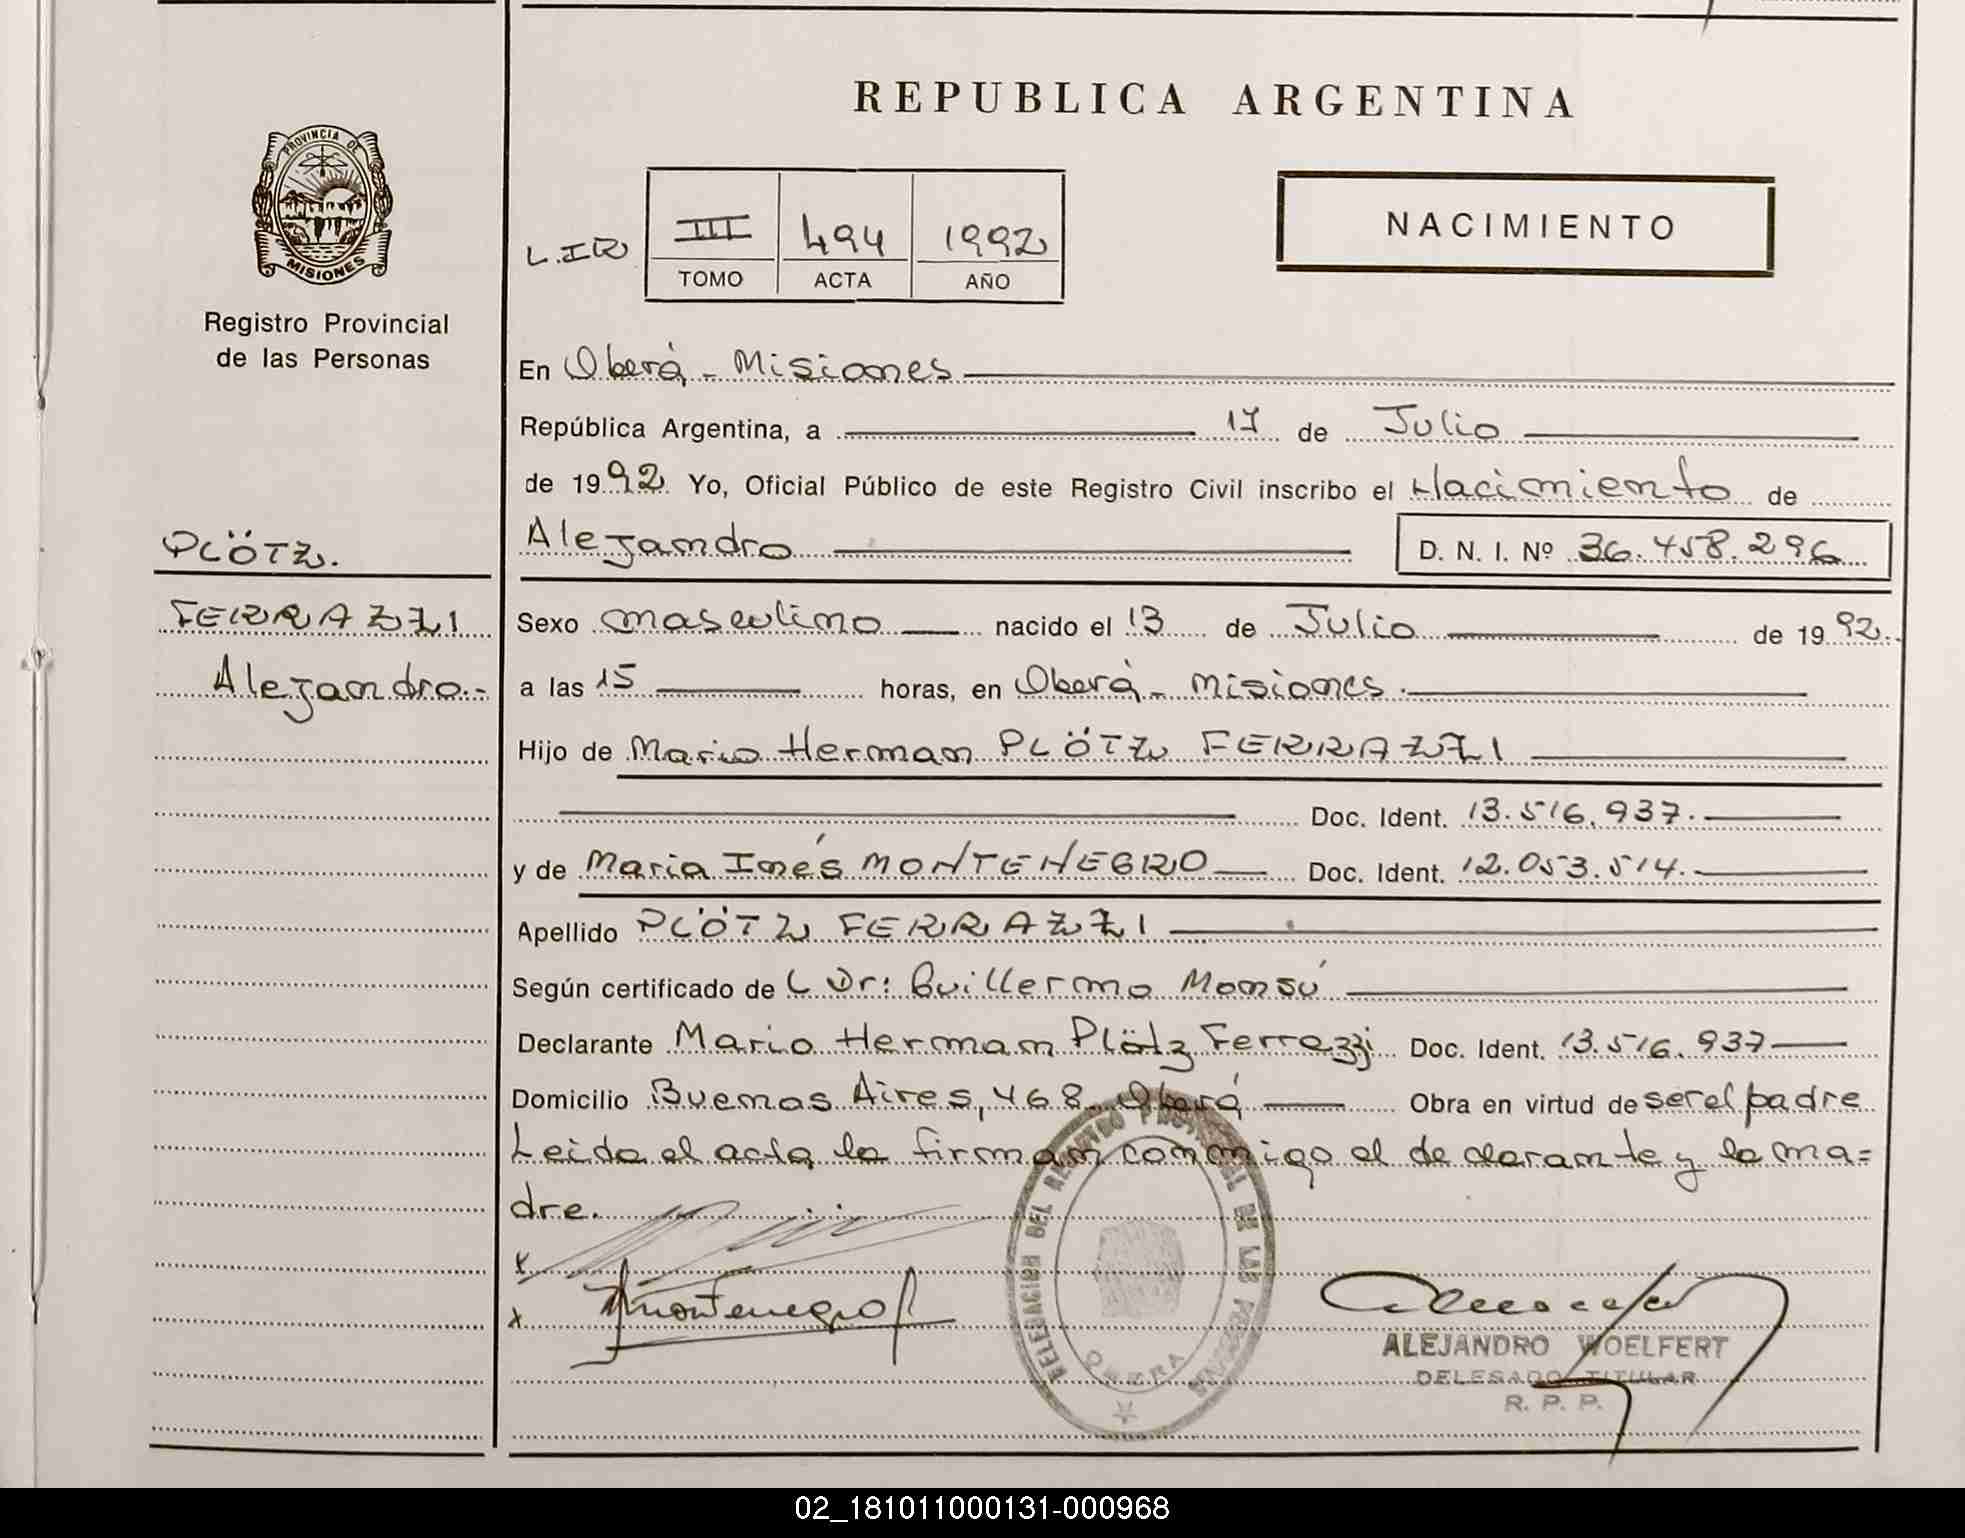 REPUBLICA ARGENTINA
PROVINCIA DE
MISIONES
Registro Provincial
de las Personas
L.IR
III 494 1992
TOMO ACTA AÑO
NACIMIENTO
En Oberá - Misiones
República Argentina, a 17 de Julio
de 1992 Yo, Oficial Público de este Registro Civil inscribo el Nacimiento de
PLÖTZ.
Alejandro D. N. I. Nº 36.458.296
FERRAZZI
Sexo masculino nacido el 13 de Julio de 1992.
Alejandro.-
a las 15 horas, en Oberá - Misiones.
Hijo de Mario Herman PLÖTZ FERRAZZI
Doc. Ident. 13.516.937.
y de Maria Inés MONTENEGRO Doc. Ident. 12.053.514.
Apellido PLÖTZ FERRAZZI
Según certificado de L Dr: Guillermo Monsú
Declarante Mario Herman Plötz Ferrazzi Doc. Ident. 13.516.937
Domicilio Buenos Aires, 468. Oberá Obra en virtud de ser el padre
Leida el acta la firman conmigo el declarante y la ma=
dre.
x
x Montenegro
DELEGACION DEL REGISTRO PROVINCIAL DE LAS PERSONAS
OBERA
ALEJANDRO WOELFERT
DELEGADO TITULAR
R. P. P.
02_181011000131-000968